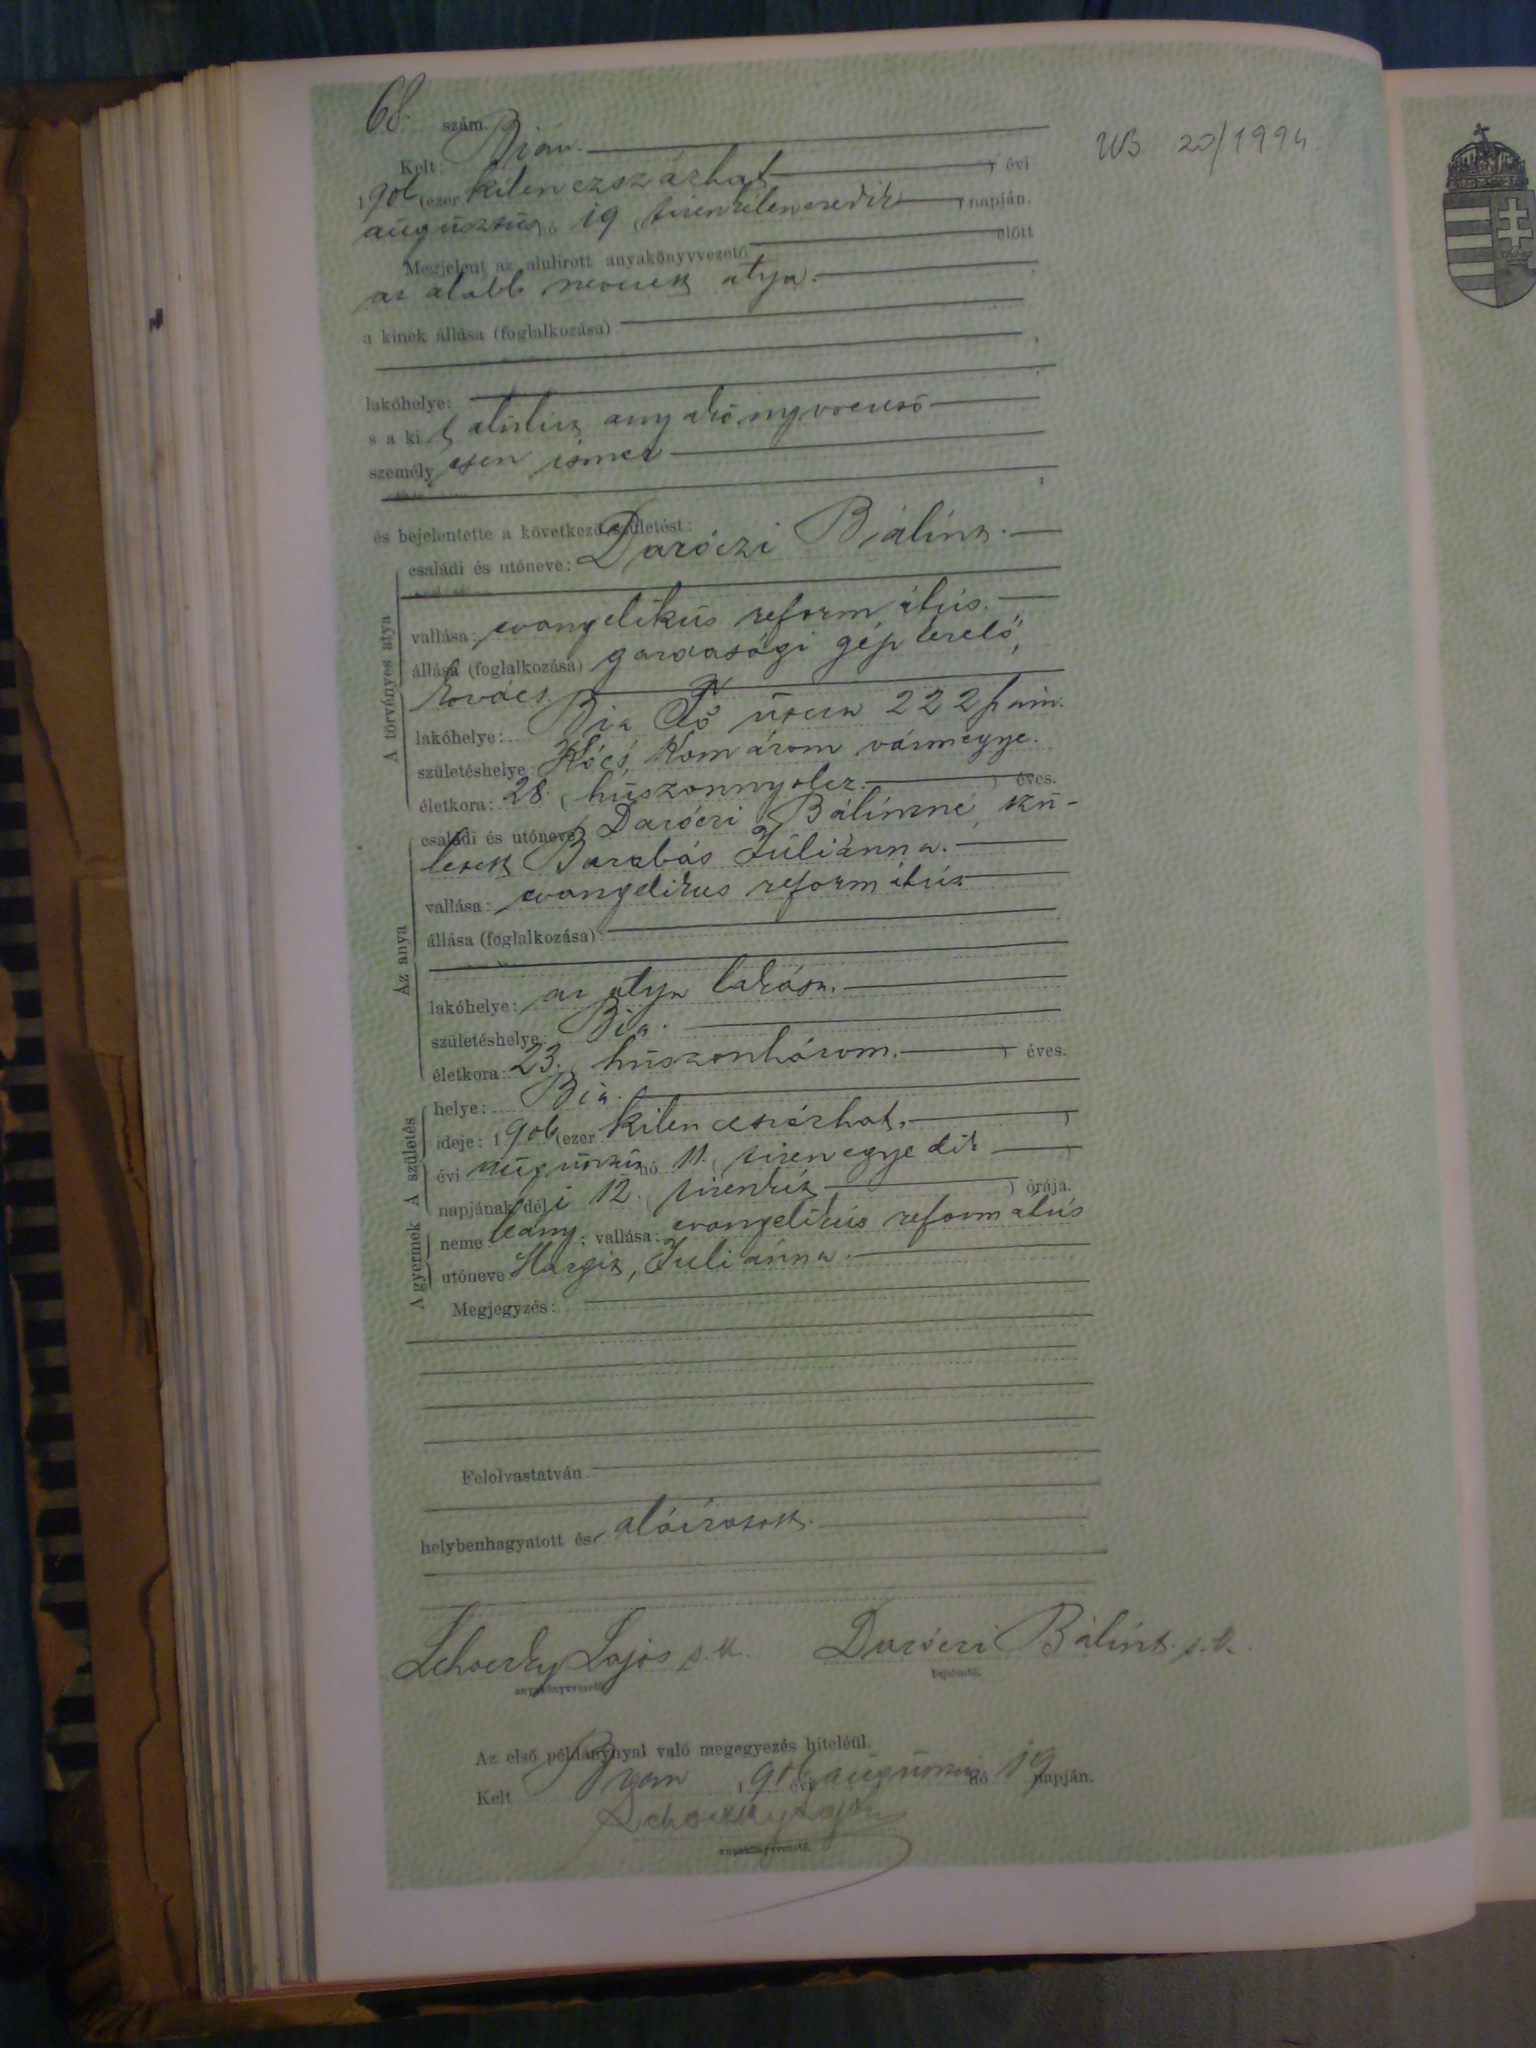 68. szám.
UB 20/1994.
Kelt: Bián.
1906 (ezer kilenczszázhat ) évi
augusztus hó 19 (tizenkilenczedik ) napján.
Megjelent az alulírott anyakönyvvezető előtt
az alább nevezett atya.
a kinek állása (foglalkozása)
lakóhelye:
s a kit alulírt anyakönyvvezető
személyesen ismer
és bejelentette a következő születést:
A törvényes atya
családi és utóneve: Daróczi Bálint.
vallása: evangelikus református.
állása (foglalkozása) gazdasági gépkezelő,
kovács.
lakóhelye: Bia Fő utcza 222 szám.
születéshelye: Kócs, Komárom vármegye.
életkora: 28. (huszonnyolcz. ) éves.
Az anya
családi és utóneve: Daróczi Bálintné, szü-
letett Barabás Juliánna.
vallása: evangelikus református
állása (foglalkozása)
lakóhelye: az atya lakása.
születéshelye: Bia.
életkora: 23. (huszonhárom. ) éves.
A születés
helye: Bia.
ideje: 1906 (ezer kilenczszázhat. )
évi augusztus hó 11. (tizenegyedik )
napjának déli 12. (tizenkét ) órája.
A gyermek
neme leány; vallása: evangelikus református
utóneve Margit, Juliánna.
Megjegyzés:
Felolvastatván
helybenhagyatott és aláíratott.
Lajos s. k. Daróczi Bálint. s. k.
anyakönyvvezető. bejelentő.
Az első példánynyal való megegyezés hiteléül.
Kelt Bián 1906 évi augusztus hó 19 napján.
Lajos
anyakönyvvezető.